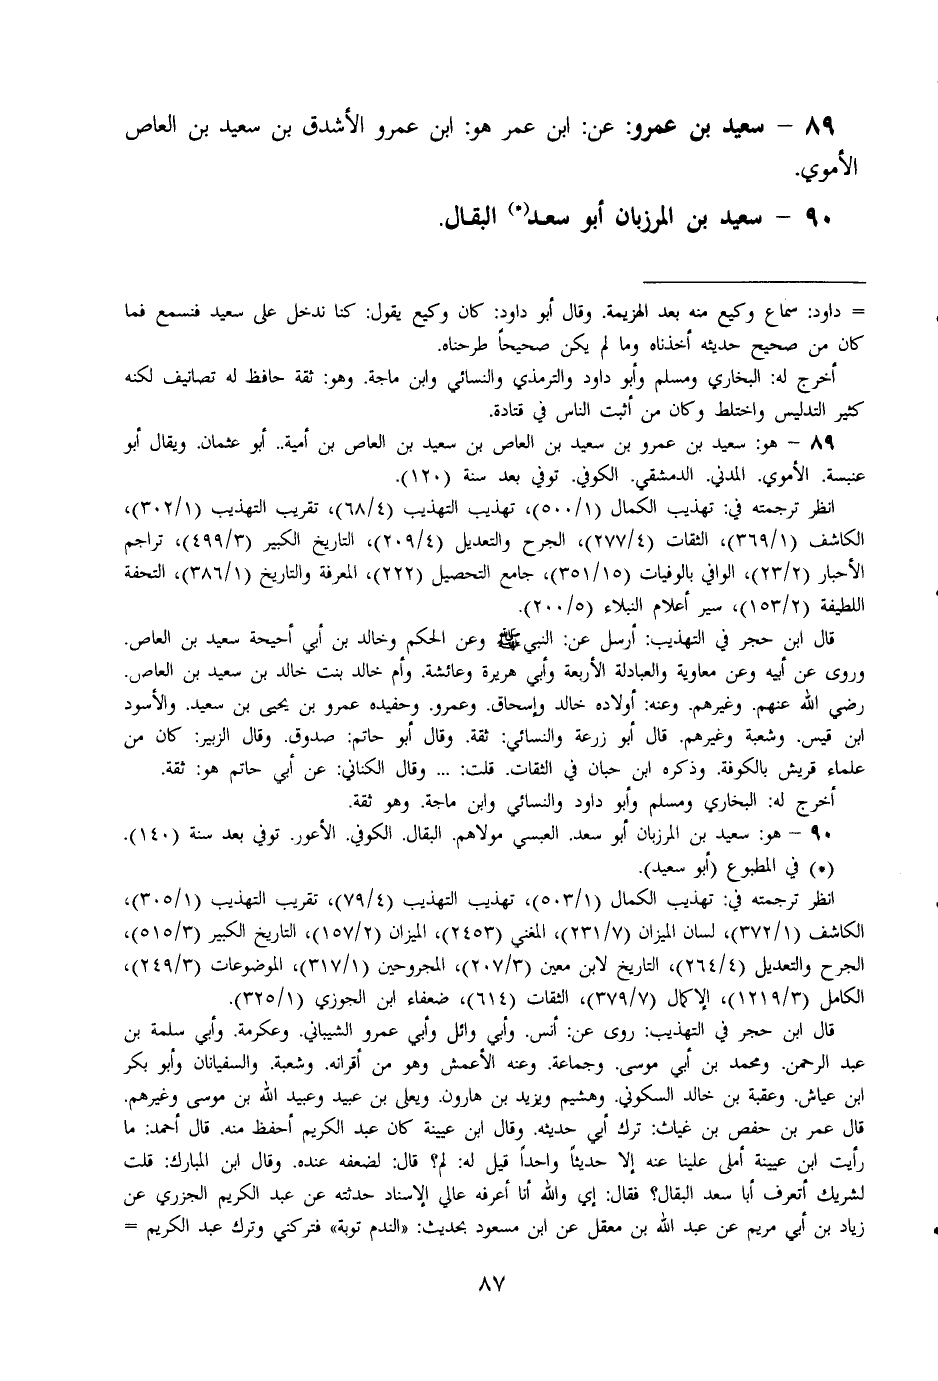 ٨٩ - سعيد بن عمرو: عن: ابن عمر هو: ابن عمرو الأشدق بن سعيد بن العاص
الأموي.
٩٠ - سعيد بن المرزبان أبو سعد(*) البقال.
= داود: سماع وكيع منه بعد الهزيمة. وقال أبو داود: كان وكيع يقول: كنا ندخل على سعيد فنسمع فما
كان من صحيح حديثه أخذناه وما لم يكن صحيحاً طرحناه.
أخرج له: البخاري ومسلم وأبو داود والترمذي والنسائي وابن ماجة. وهو: ثقة حافظ له تصانيف لكنه
كثير التدليس واختلط وكان من أثبت الناس في قتادة.
٨٩ - هو: سعيد بن عمرو بن سعيد بن العاص بن سعيد بن العاص بن أمية.. أبو عثمان. ويقال أبو
عنبسة. الأموي. المدني. الدمشقي. الكوفي. توفي بعد سنة (١٢٠).
انظر ترجمته في: تهذيب الكمال (٥٠٠/١)، تهذيب التهذيب (٦٨/٤)، تقريب التهذيب (٣٠٢/١)،
الكاشف (٣٦٩/١)، الثقات (٢٧٧/٤)، الجرح والتعديل (٢٠٩/٤)، التاريخ الكبير (٤٩٩/٣)، تراجم
الأحبار (٢٣/٢)، الوافي بالوفيات (٣٥١/١٥)، جامع التحصيل (٢٢٢)، المعرفة والتاريخ (٣٨٦/١)، التحفة
اللطيفة (١٥٣/٢)، سير أعلام النبلاء (٢٠٠/٥).
قال ابن حجر في التهذيب: أرسل عن: النبي ﷺ وعن الحكم وخالد بن أبي أحيحة سعيد بن العاص.
وروى عن أبيه وعن معاوية والعبادلة الأربعة وأبي هريرة وعائشة. وأم خالد بنت خالد بن سعيد بن العاص.
رضي الله عنهم. وغيرهم. وعنه: أولاده خالد وإسحاق. وعمرو. وحفيده عمرو بن يحيى بن سعيد. والأسود
ابن قيس. وشعبة وغيرهم. قال أبو زرعة والنسائي: ثقة. وقال أبو حاتم: صدوق. وقال الزبير: كان من
علماء قريش بالكوفة. وذكره ابن حبان في الثقات. قلت: ... وقال الكناني: عن أبي حاتم هو: ثقة.
أخرج له: البخاري ومسلم وأبو داود والنسائي وابن ماجة. وهو ثقة.
٩٠ - هو: سعيد بن المرزبان أبو سعد. العبسي مولاهم. البقال. الكوفي. الأعور. توفي بعد سنة (١٤٠).
(*) في المطبوع (أبو سعيد).
انظر ترجمته في: تهذيب الكمال (٥٠٣/١)، تهذيب التهذيب (٧٩/٤)، تقريب التهذيب (٣٠٥/١)،
الكاشف (٣٧٢/١)، لسان الميزان (٢٣١/٧)، المغني (٢٤٥٣)، الميزان (١٥٧/٢)، التاريخ الكبير (٥١٥/٣)،
الجرح والتعديل (٢٦٤/٤)، التاريخ لابن معين (٢٠٧/٣)، المجروحين (٣١٧/١)، الموضوعات (٢٤٩/٣)،
الكامل (١٢١٩/٣)، الإكمال (٣٧٩/٧)، الثقات (٦١٤)، ضعفاء ابن الجوزي (٣٢٥/١).
قال ابن حجر في التهذيب: روى عن: أنس. وأبي وائل وأبي عمرو الشيباني. وعكرمة. وأبي سلمة بن
عبد الرحمن. ومحمد بن أبي موسى. وجماعة. وعنه الأعمش وهو من أقرانه. وشعبة. والسفيانان وأبو بكر
ابن عياش. وعقبة بن خالد السكوني. وهشيم ويزيد بن هارون. ويعلى بن عبيد وعبيد الله بن موسى وغيرهم.
قال عمر بن حفص بن غياث: ترك أبي حديثه. وقال ابن عيينة كان عبد الكريم أحفظ منه. قال أحمد: ما
رأيت ابن عيينة أملى علينا عنه إلا حديثاً واحداً قيل له: لم؟ قال: لضعفه عنده. وقال ابن المبارك: قلت
لشريك أتعرف أبا سعد البقال؟ فقال: إي والله أنا أعرفه عالي الإسناد حدثته عن عبد الكريم الجزري عن
زياد بن أبي مريم عن عبد الله بن معقل عن ابن مسعود بحديث: «الندم توبة» فتركني وترك عبد الكريم =
٨٧